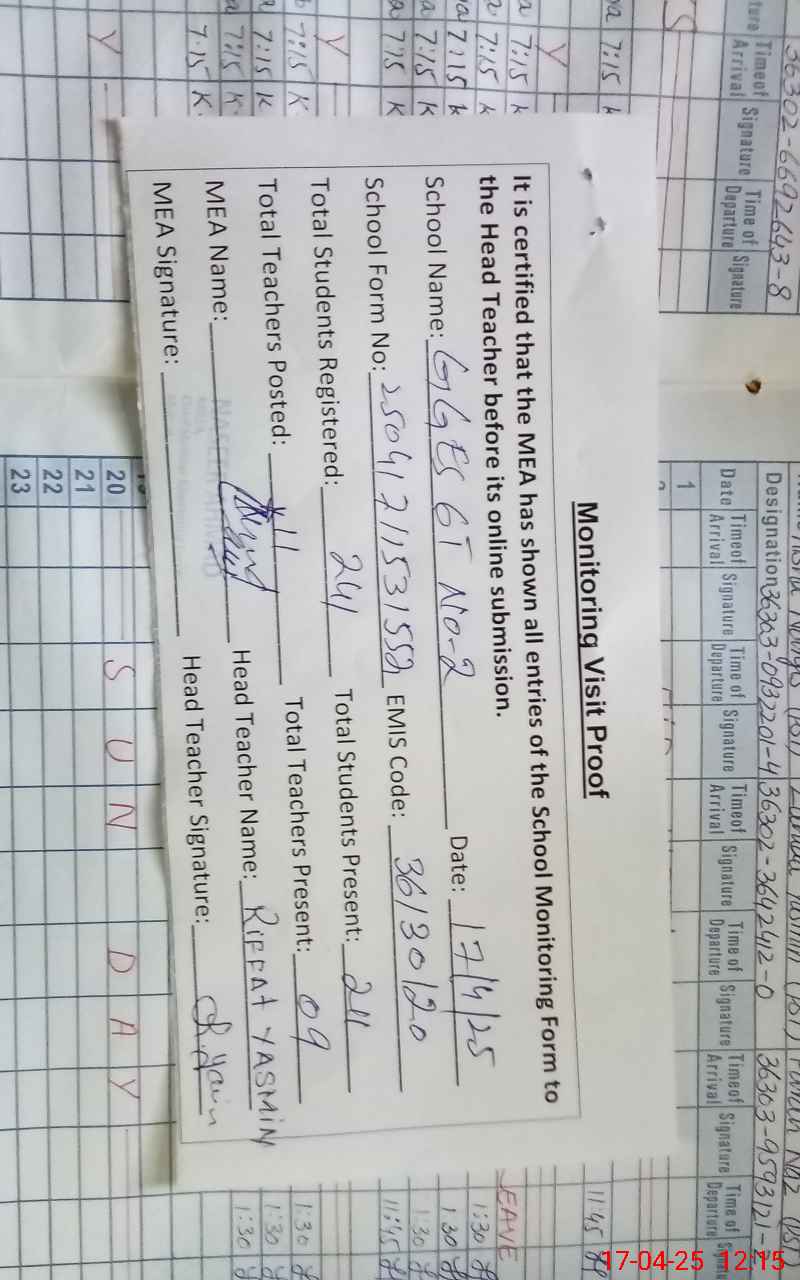 Monitoring Visit Proof
It is certified that the MEA has shown all entries of the School Monitoring Form to
the Head Teacher before its online submission.
School Name: GGES 6T No-2 Date: 17/4/25
School Form No: 25041711531552 EMIS Code: 36130120
Total Students Registered: 241 Total Students Present: 211
Total Teachers Posted: 11 Total Teachers Present: 09
MEA Name: Head Teacher Name: RIFFAT YASMIN
MEA Signature: Head Teacher Signature:
36302-6692643-8
Time of Arrival Signature Time of Departure Signature
Designation 36303-0932201-4 36302-3642412-0 36303-9593121-
Date Time of Arrival Signature Time of Departure Signature Time of Arrival Signature Time of Departure Signature Time of Arrival Signature Time of Departure
1
7:15
7:15
7:15
7:15
7:15
7:15
7:15
7:15
7:15
7:15
Y
Y
Y
11:45
LEAVE
1:30
1:30
1:30
11:45
1:30
1:30
1:30
20 SUNDAY
21
22
23
17-04-25 12:15